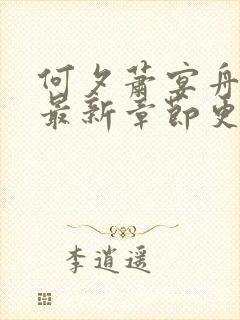 何夕萧宴舟
最新章节更
李逍遥